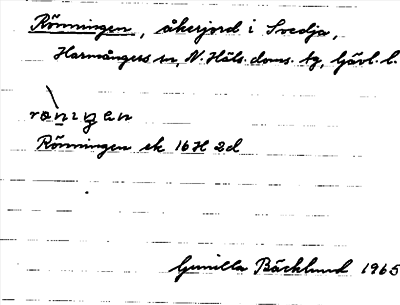 Rönningen, åkerjord i Svedja,
Harmångers sn, N. Häls. doms. tg, Gävl. l.
Rönningen ek 16H 2d
Gunilla Bäcklund 1965